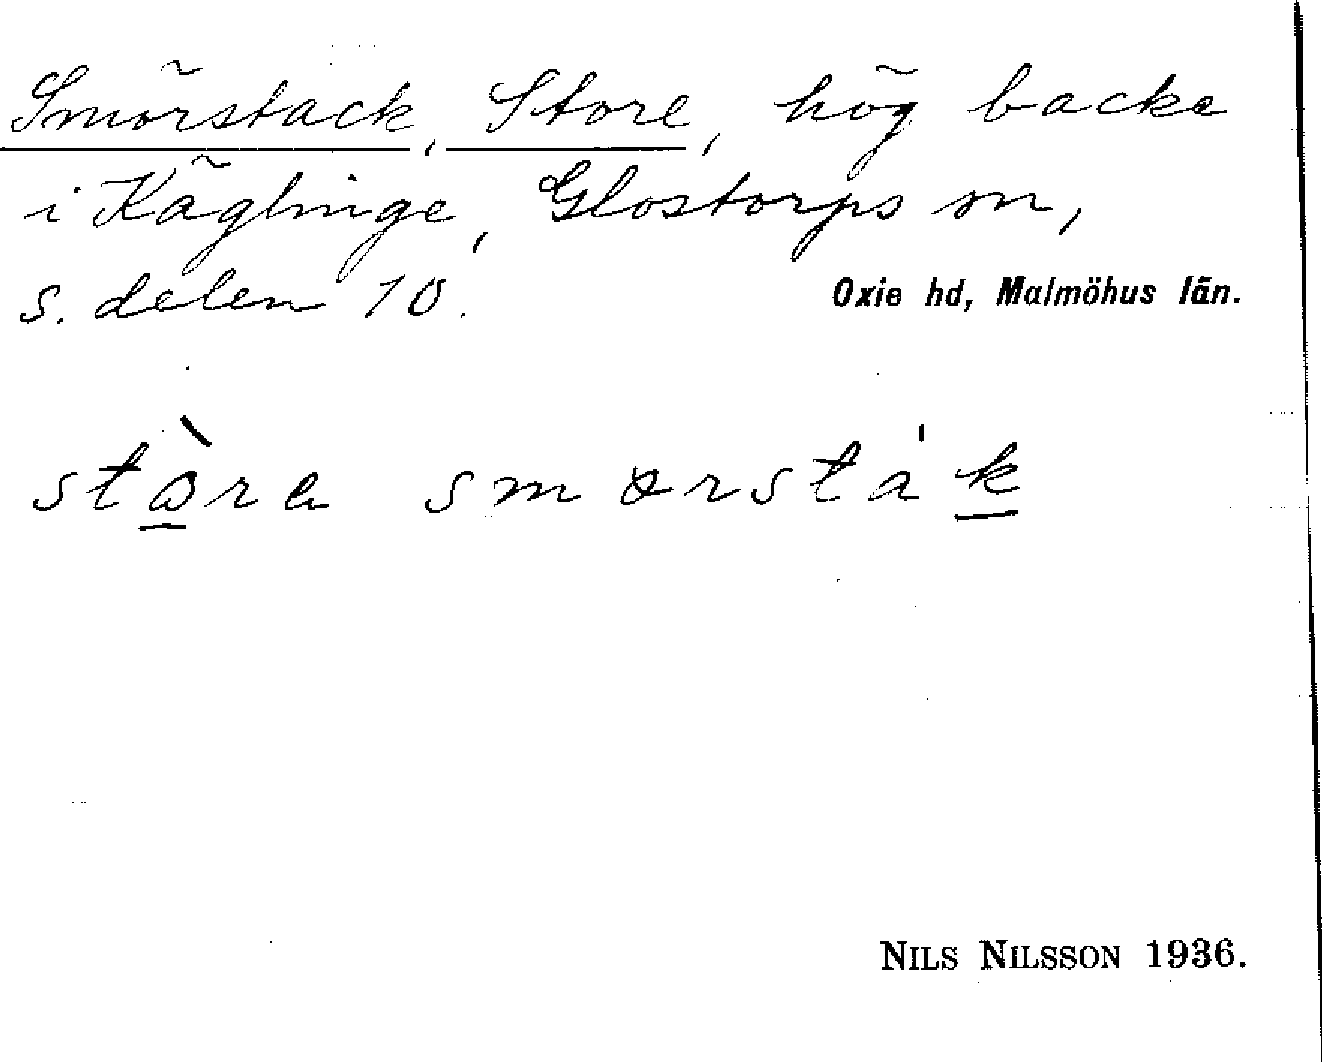 Smörstack, Store, hög backe
i Käglinge, Glostorps sn,
s. delen 10.
Oxie hd, Malmöhus län.
stòra smørstá'k
NILS NILSSON 1936.